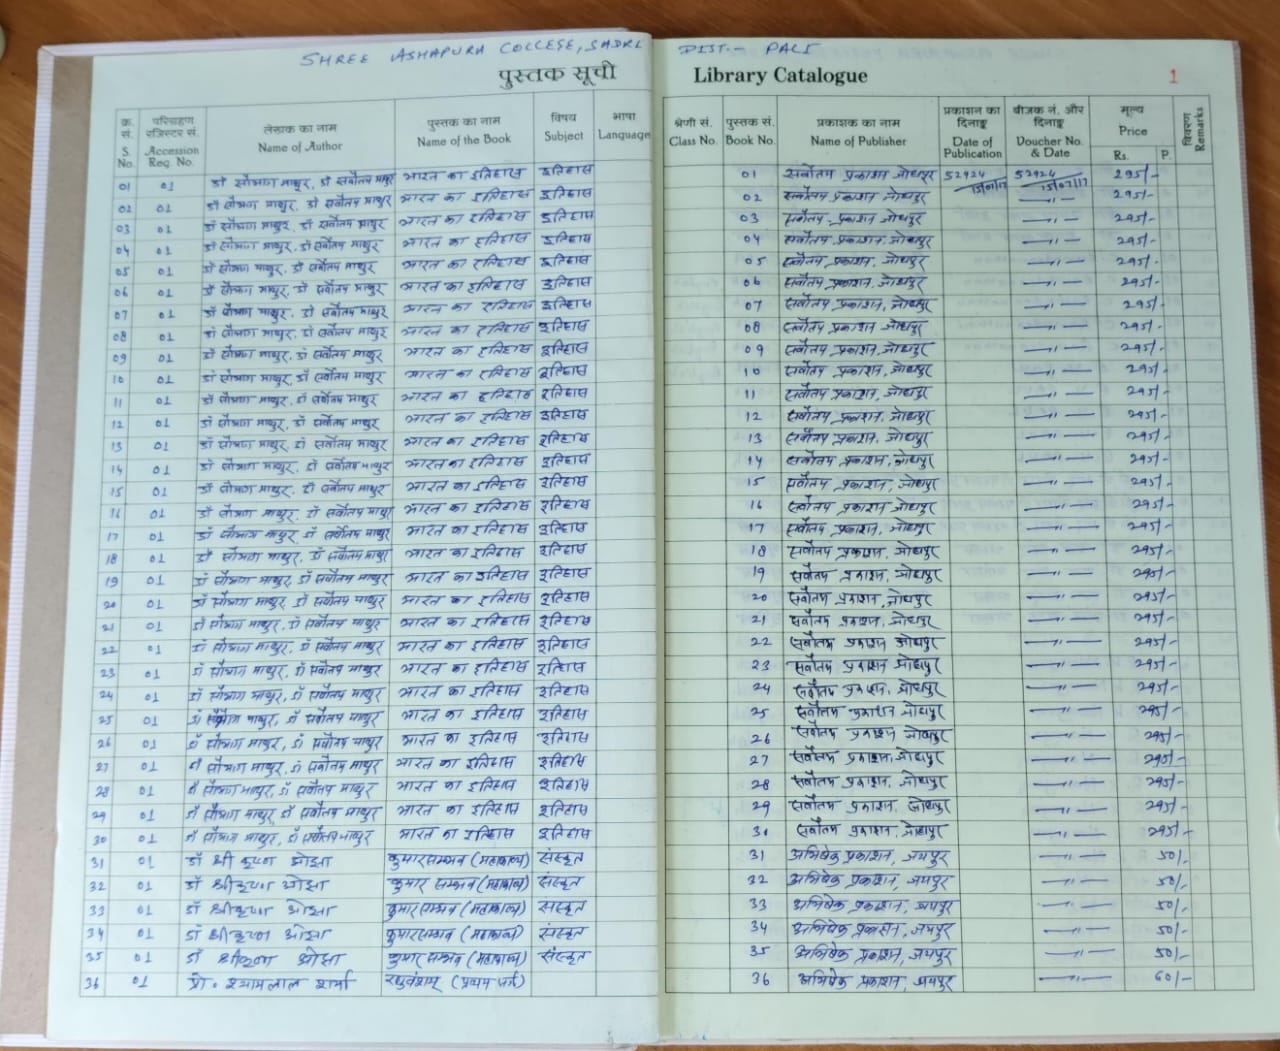 SHREE ASHAPURA COLLEGE, SADRI DIST.- PALI
पुस्तक सूची Library Catalogue 1
क्र. सं. S. No. परिग्रहण रजिस्टर सं. Accession Reg. No. लेखक का नाम Name of Author पुस्तक का नाम Name of the Book विषय Subject भाषा Language श्रेणी सं. Class No. पुस्तक सं. Book No. प्रकाशक का नाम Name of Publisher प्रकाशन का दिनाङ्क Date of Publication वीजक नं. और दिनाङ्क Voucher No. & Date मूल्य Price Rs. P. विवरण Remarks
01 01 डॉ सौभाग माथुर, डॉ सर्वोतम माथुर भारत का इतिहास इतिहास 01 सर्वोतम प्रकाशन जोधपुर 52924 52924 15/07/17 295/-
02 01 डॉ सौभाग माथुर, डॉ सर्वोतम माथुर भारत का इतिहास इतिहास 02 सर्वोतम प्रकाशन जोधपुर —〃— 295/-
03 01 डॉ सौभाग माथुर, डॉ सर्वोतम माथुर भारत का इतिहास इतिहास 03 सर्वोतम प्रकाशन जोधपुर —〃— 295/-
04 01 डॉ सौभाग माथुर, डॉ सर्वोतम माथुर भारत का इतिहास इतिहास 04 सर्वोतम प्रकाशन, जोधपुर —〃— 295/-
05 01 डॉ सौभाग माथुर, डॉ सर्वोतम माथुर भारत का इतिहास इतिहास 05 सर्वोतम प्रकाशन, जोधपुर —〃— 295/-
06 01 डॉ सौभाग माथुर, डॉ सर्वोतम माथुर भारत का इतिहास इतिहास 06 सर्वोतम प्रकाशन, जोधपुर —〃— 295/-
07 01 डॉ सौभाग माथुर, डॉ सर्वोतम माथुर भारत का इतिहास इतिहास 07 सर्वोतम प्रकाशन, जोधपुर —〃— 295/-
08 01 डॉ सौभाग माथुर, डॉ सर्वोतम माथुर भारत का इतिहास इतिहास 08 सर्वोतम प्रकाशन, जोधपुर —〃— 295/-
09 01 डॉ सौभाग माथुर, डॉ सर्वोतम माथुर भारत का इतिहास इतिहास 09 सर्वोतम प्रकाशन, जोधपुर —〃— 295/-
10 01 डॉ सौभाग माथुर, डॉ सर्वोतम माथुर भारत का इतिहास इतिहास 10 सर्वोतम प्रकाशन, जोधपुर —〃— 295/-
11 01 डॉ सौभाग माथुर, डॉ सर्वोतम माथुर भारत का इतिहास इतिहास 11 सर्वोतम प्रकाशन, जोधपुर —〃— 295/-
12 01 डॉ सौभाग माथुर, डॉ सर्वोतम माथुर भारत का इतिहास इतिहास 12 सर्वोतम प्रकाशन, जोधपुर —〃— 295/-
13 01 डॉ सौभाग माथुर, डॉ सर्वोतम माथुर भारत का इतिहास इतिहास 13 सर्वोतम प्रकाशन, जोधपुर —〃— 295/-
14 01 डॉ सौभाग माथुर, डॉ सर्वोतम माथुर भारत का इतिहास इतिहास 14 सर्वोतम प्रकाशन, जोधपुर —〃— 295/-
15 01 डॉ सौभाग माथुर, डॉ सर्वोतम माथुर भारत का इतिहास इतिहास 15 सर्वोतम प्रकाशन, जोधपुर —〃— 295/-
16 01 डॉ सौभाग माथुर, डॉ सर्वोतम माथुर भारत का इतिहास इतिहास 16 सर्वोतम प्रकाशन, जोधपुर —〃— 295/-
17 01 डॉ सौभाग माथुर, डॉ सर्वोतम माथुर भारत का इतिहास इतिहास 17 सर्वोतम प्रकाशन, जोधपुर —〃— 295/-
18 01 डॉ सौभाग माथुर, डॉ सर्वोतम माथुर भारत का इतिहास इतिहास 18 सर्वोतम प्रकाशन, जोधपुर —〃— 295/-
19 01 डॉ सौभाग माथुर, डॉ सर्वोतम माथुर भारत का इतिहास इतिहास 19 सर्वोतम प्रकाशन, जोधपुर —〃— 295/-
20 01 डॉ सौभाग माथुर, डॉ सर्वोतम माथुर भारत का इतिहास इतिहास 20 सर्वोतम प्रकाशन, जोधपुर —〃— 295/-
21 01 डॉ सौभाग माथुर, डॉ सर्वोतम माथुर भारत का इतिहास इतिहास 21 सर्वोतम प्रकाशन, जोधपुर —〃— 295/-
22 01 डॉ सौभाग माथुर, डॉ सर्वोतम माथुर भारत का इतिहास इतिहास 22 सर्वोतम प्रकाशन जोधपुर —〃— 295/-
23 01 डॉ सौभाग माथुर, डॉ सर्वोतम माथुर भारत का इतिहास इतिहास 23 सर्वोतम प्रकाशन जोधपुर —〃— 295/-
24 01 डॉ सौभाग माथुर, डॉ सर्वोतम माथुर भारत का इतिहास इतिहास 24 सर्वोतम प्रकाशन, जोधपुर —〃— 295/-
25 01 डॉ सौभाग माथुर, डॉ सर्वोतम माथुर भारत का इतिहास इतिहास 25 सर्वोतम प्रकाशन जोधपुर —〃— 295/-
26 01 डॉ सौभाग माथुर, डॉ सर्वोतम माथुर भारत का इतिहास इतिहास 26 सर्वोतम प्रकाशन, जोधपुर —〃— 295/-
27 01 डॉ सौभाग माथुर, डॉ सर्वोतम माथुर भारत का इतिहास इतिहास 27 सर्वोतम प्रकाशन, जोधपुर —〃— 295/-
28 01 डॉ सौभाग माथुर, डॉ सर्वोतम माथुर भारत का इतिहास इतिहास 28 सर्वोतम प्रकाशन, जोधपुर —〃— 295/-
29 01 डॉ सौभाग माथुर डॉ सर्वोतम माथुर भारत का इतिहास इतिहास 29 सर्वोतम प्रकाशन, जोधपुर —〃— 295/-
30 01 डॉ सौभाग माथुर, डॉ सर्वोतम माथुर भारत का इतिहास इतिहास 30 सर्वोतम प्रकाशन, जोधपुर —〃— 295/-
31 01 डॉ श्री कृष्ण ओझा कुमारसम्भव (महाकाव्य) संस्कृत 31 अभिषेक प्रकाशन, जयपुर —〃— 50/-
32 01 डॉ श्रीकृष्ण ओझा कुमार सम्भव (महाकाव्य) संस्कृत 32 अभिषेक प्रकाशन, जयपुर —〃— 50/-
33 01 डॉ श्रीकृष्ण ओझा कुमार सम्भव (महाकाव्य) संस्कृत 33 अभिषेक प्रकाशन, जयपुर —〃— 50/-
34 01 डॉ श्रीकृष्ण ओझा कुमारसम्भव (महाकाव्य) संस्कृत 34 अभिषेक प्रकाशन, जयपुर —〃— 50/-
35 01 डॉ श्रीकृष्ण ओझा कुमारसम्भव (महाकाव्य) संस्कृत 35 अभिषेक प्रकाशन, जयपुर —〃— 50/-
36 01 प्रो. श्यामलाल शर्मा रघुवंशम् (प्रथम सर्ग) 36 अभिषेक प्रकाशन, जयपुर —〃— 60/-